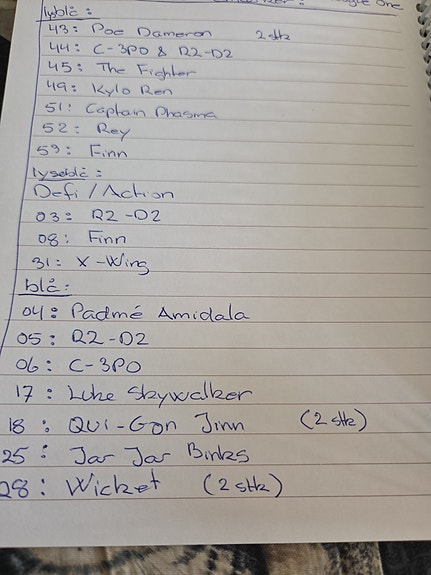 lyblå :
43: Poe Dameron 2 stk
44: C-3PO & R2-D2
45: The Fighter
49: Kylo Ren
51: Captain Phasma
52: Rey
59: Finn
lyseblå :
Defi / Action
03: R2-D2
08: Finn
31: X-Wing
blå:
04: Padmé Amidala
05: R2-D2
06: C-3PO
17: Luke Skywalker
18: QUI-Gon Jinn (2 stk)
25: Jar Jar Binks
28: Wicket (2 stk)